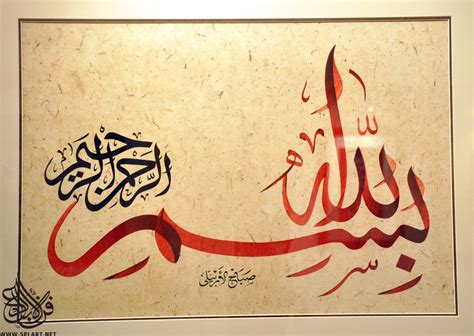 بسم الله
الرحمن الرحيم
صباح الأربيلي
WWW.SRLART.NET